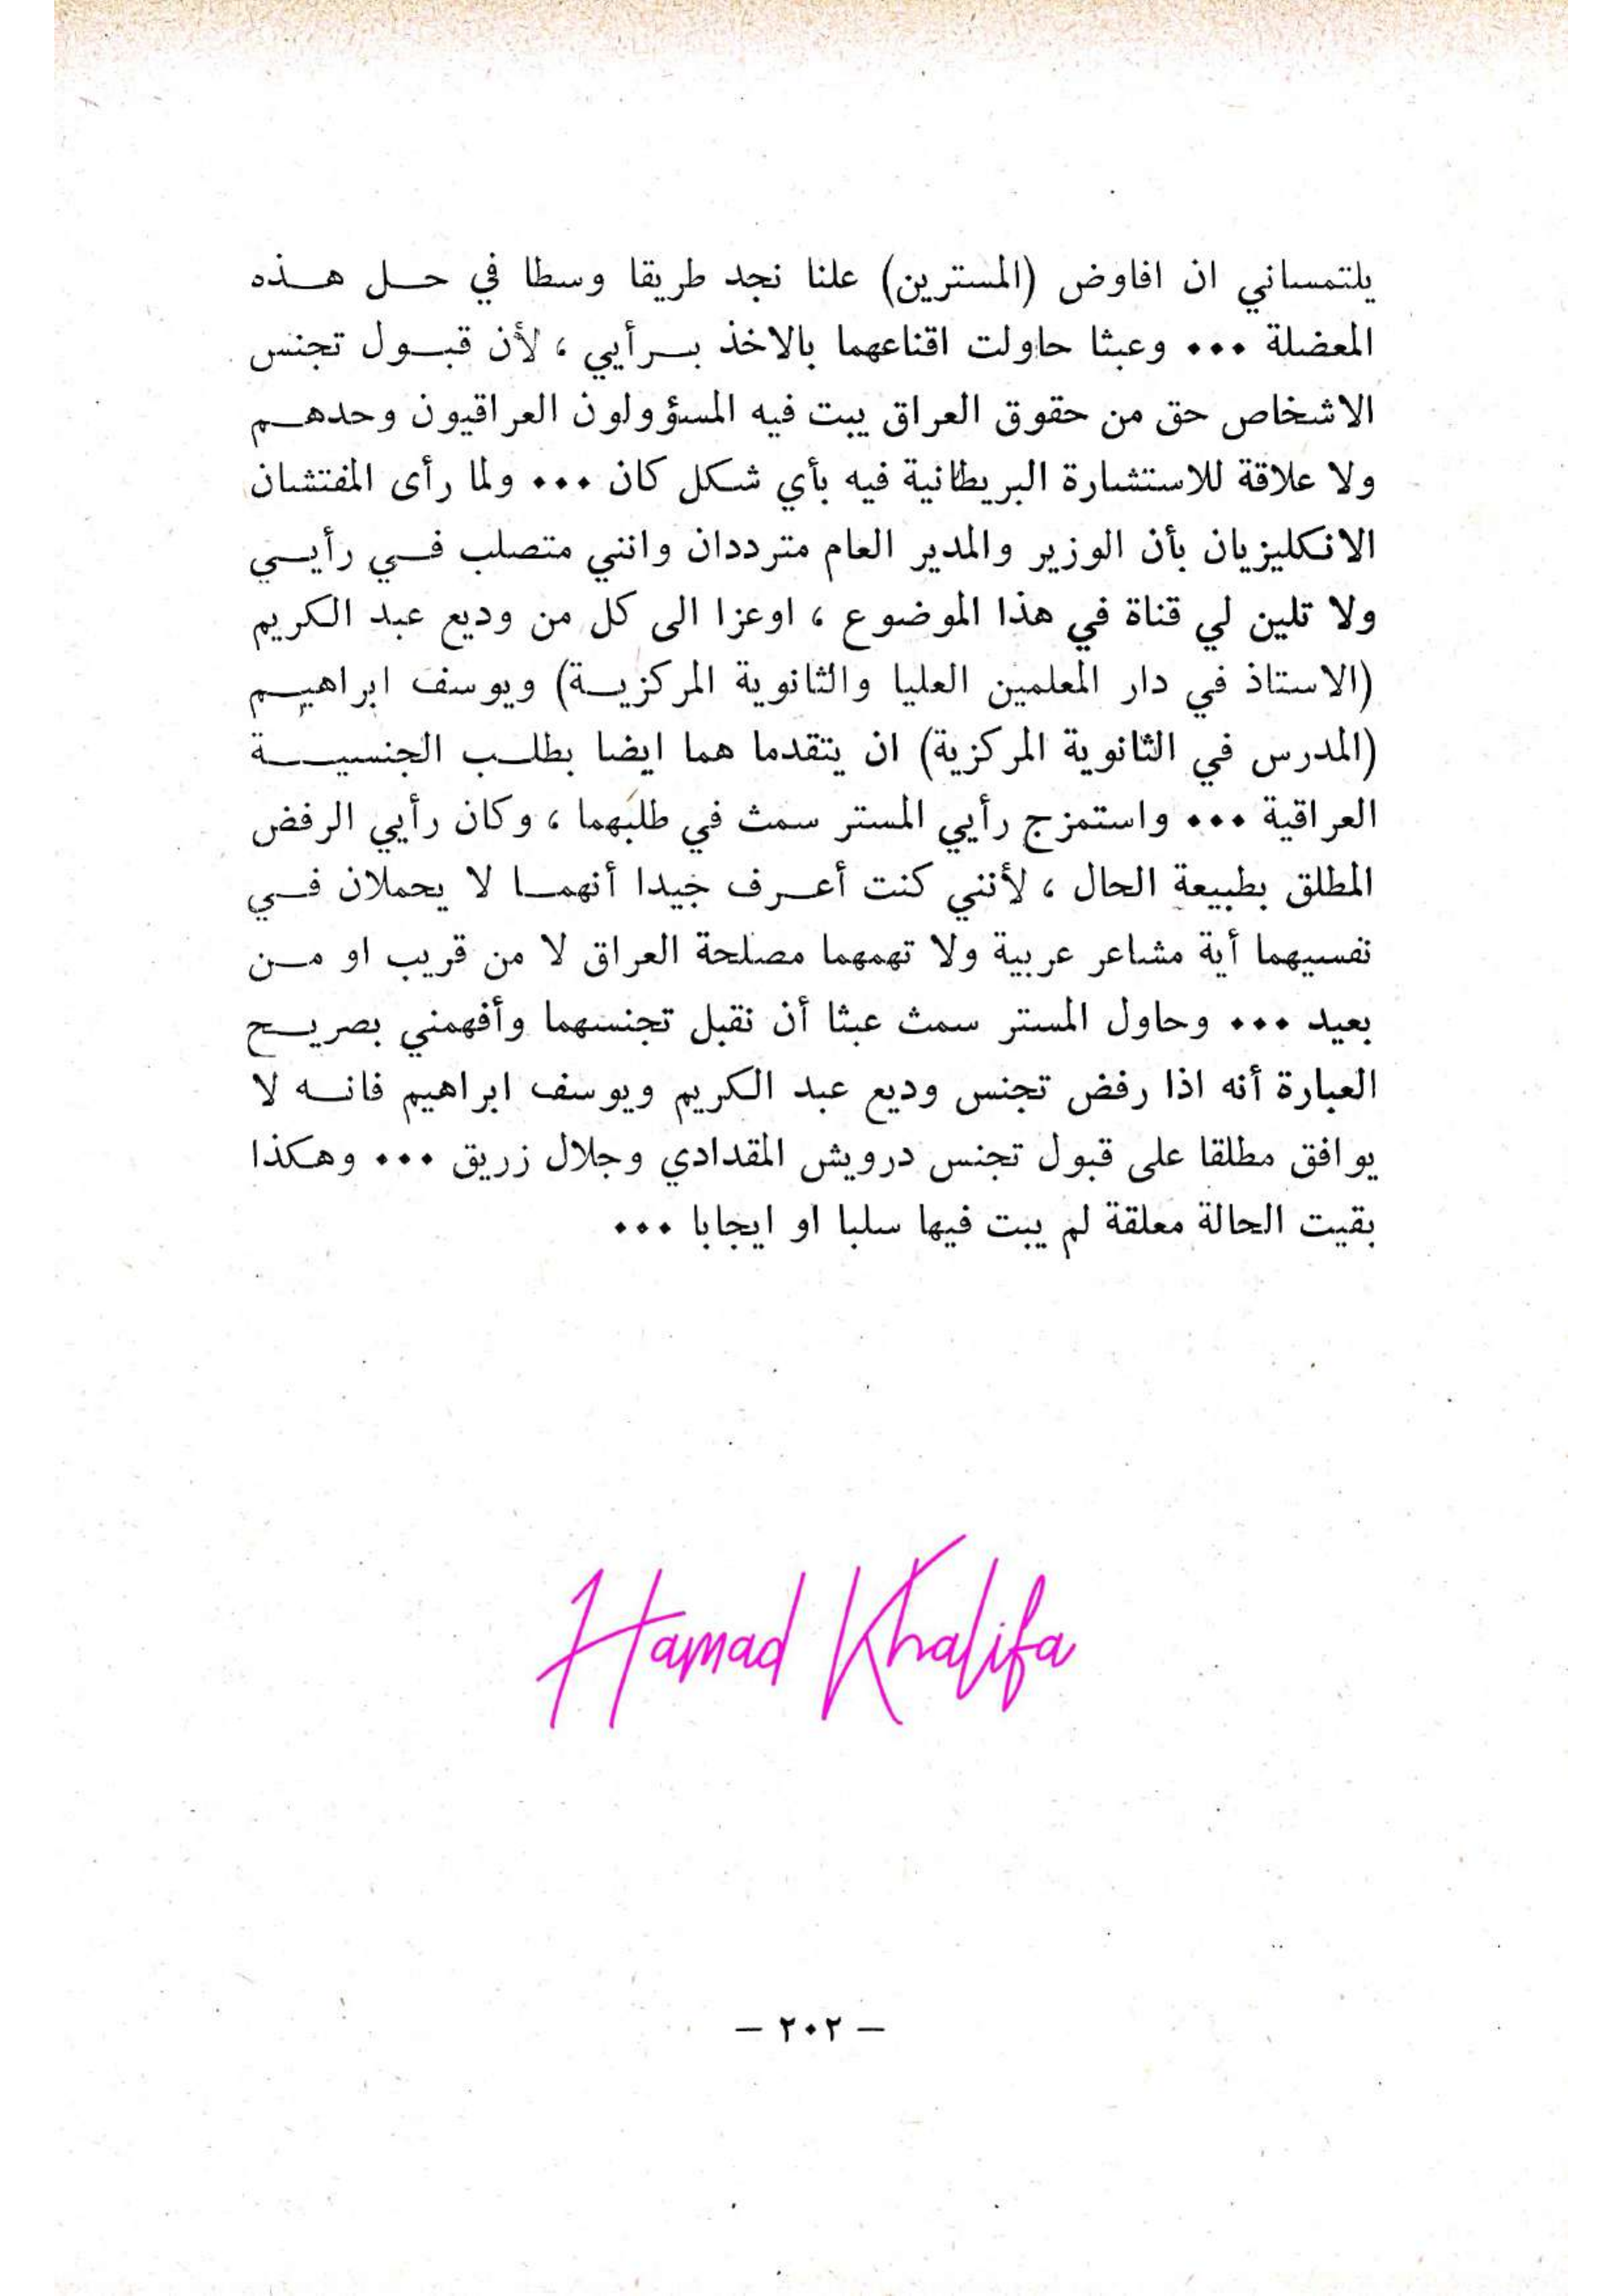 يلتمساني ان افاوض (المسترين) علنا نجد طريقا وسطا في حل هذه
المعضلة ••• وعبثا حاولت اقناعهما بالاخذ برأيي ، لأن قبول تجنس
الاشخاص حق من حقوق العراق يبت فيه المسؤولون العراقيون وحدهم
ولا علاقة للاستشارة البريطانية فيه بأي شكل كان ••• ولما رأى المفتشان
الانكليزيان بأن الوزير والمدير العام مترددان وانني متصلب في رأيي
ولا تلين لي قناة في هذا الموضوع ، اوعزا الى كل من وديع عبد الكريم
(الاستاذ في دار المعلمين العليا والثانوية المركزية) ويوسف ابراهيم
(المدرس في الثانوية المركزية) ان يتقدما هما ايضا بطلب الجنسية
العراقية ••• واستمزج رأيي المستر سمث في طلبهما ، وكان رأيي الرفض
المطلق بطبيعة الحال ، لأنني كنت أعرف جيدا أنهما لا يحملان في
نفسيهما أية مشاعر عربية ولا تهمهما مصلحة العراق لا من قريب او من
بعيد ••• وحاول المستر سمث عبثا أن نقبل تجنسهما وأفهمني بصريح
العبارة أنه اذا رفض تجنس وديع عبد الكريم ويوسف ابراهيم فانه لا
يوافق مطلقا على قبول تجنس درويش المقدادي وجلال زريق ••• وهكذا
بقيت الحالة معلقة لم يبت فيها سلبا او ايجابا •••
Hamad Khalifa
— ٢٠٢ —